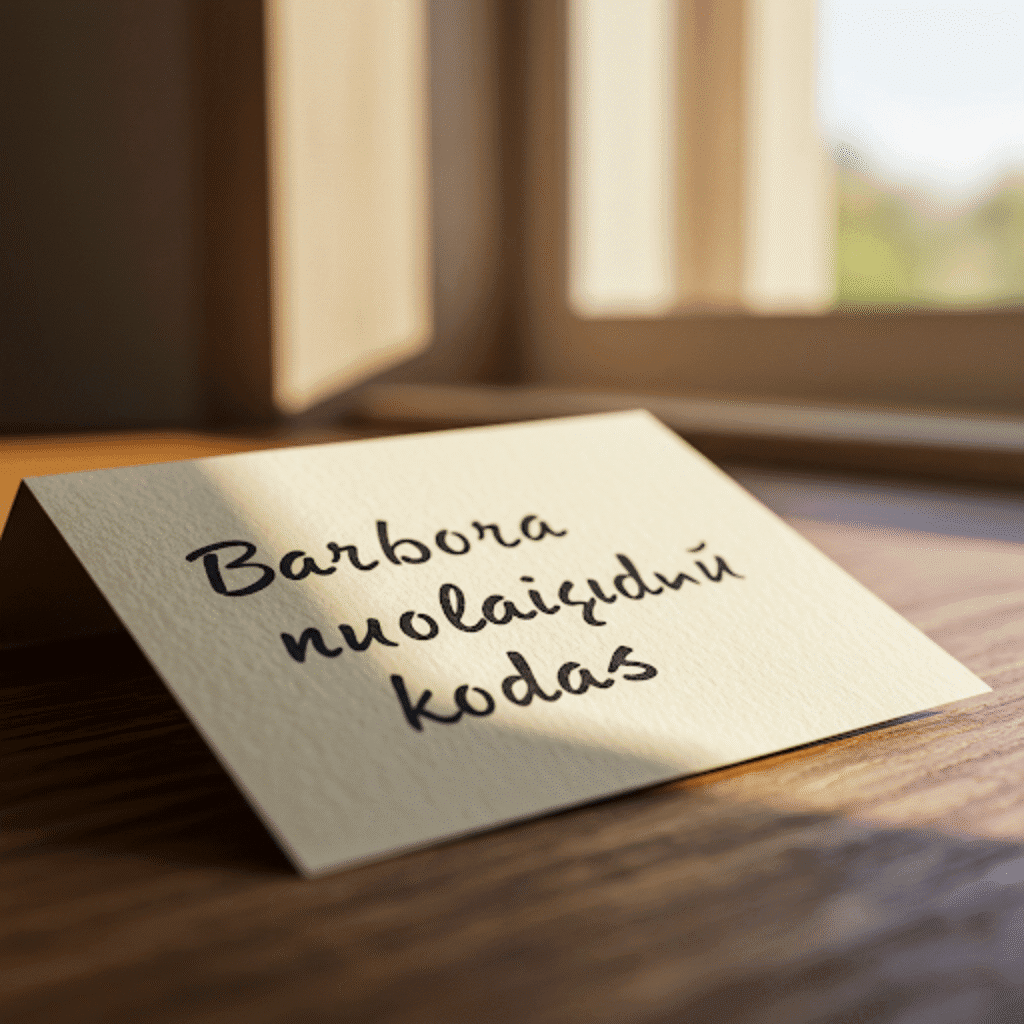 Barbora
nuolaiçıdnŭ
kodas